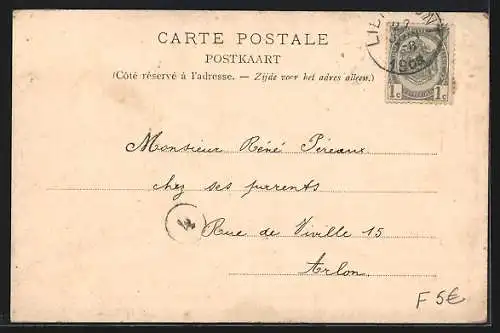 CARTE POSTALE
POSTKAART
(Côté réservé à l'adresse. — Zijde voor het adres alleen.)
1903
1c 1c
Monsieur Réné Péreaux
chez ses parents
4
Rue de Viville 15
Arlon.
F 5€